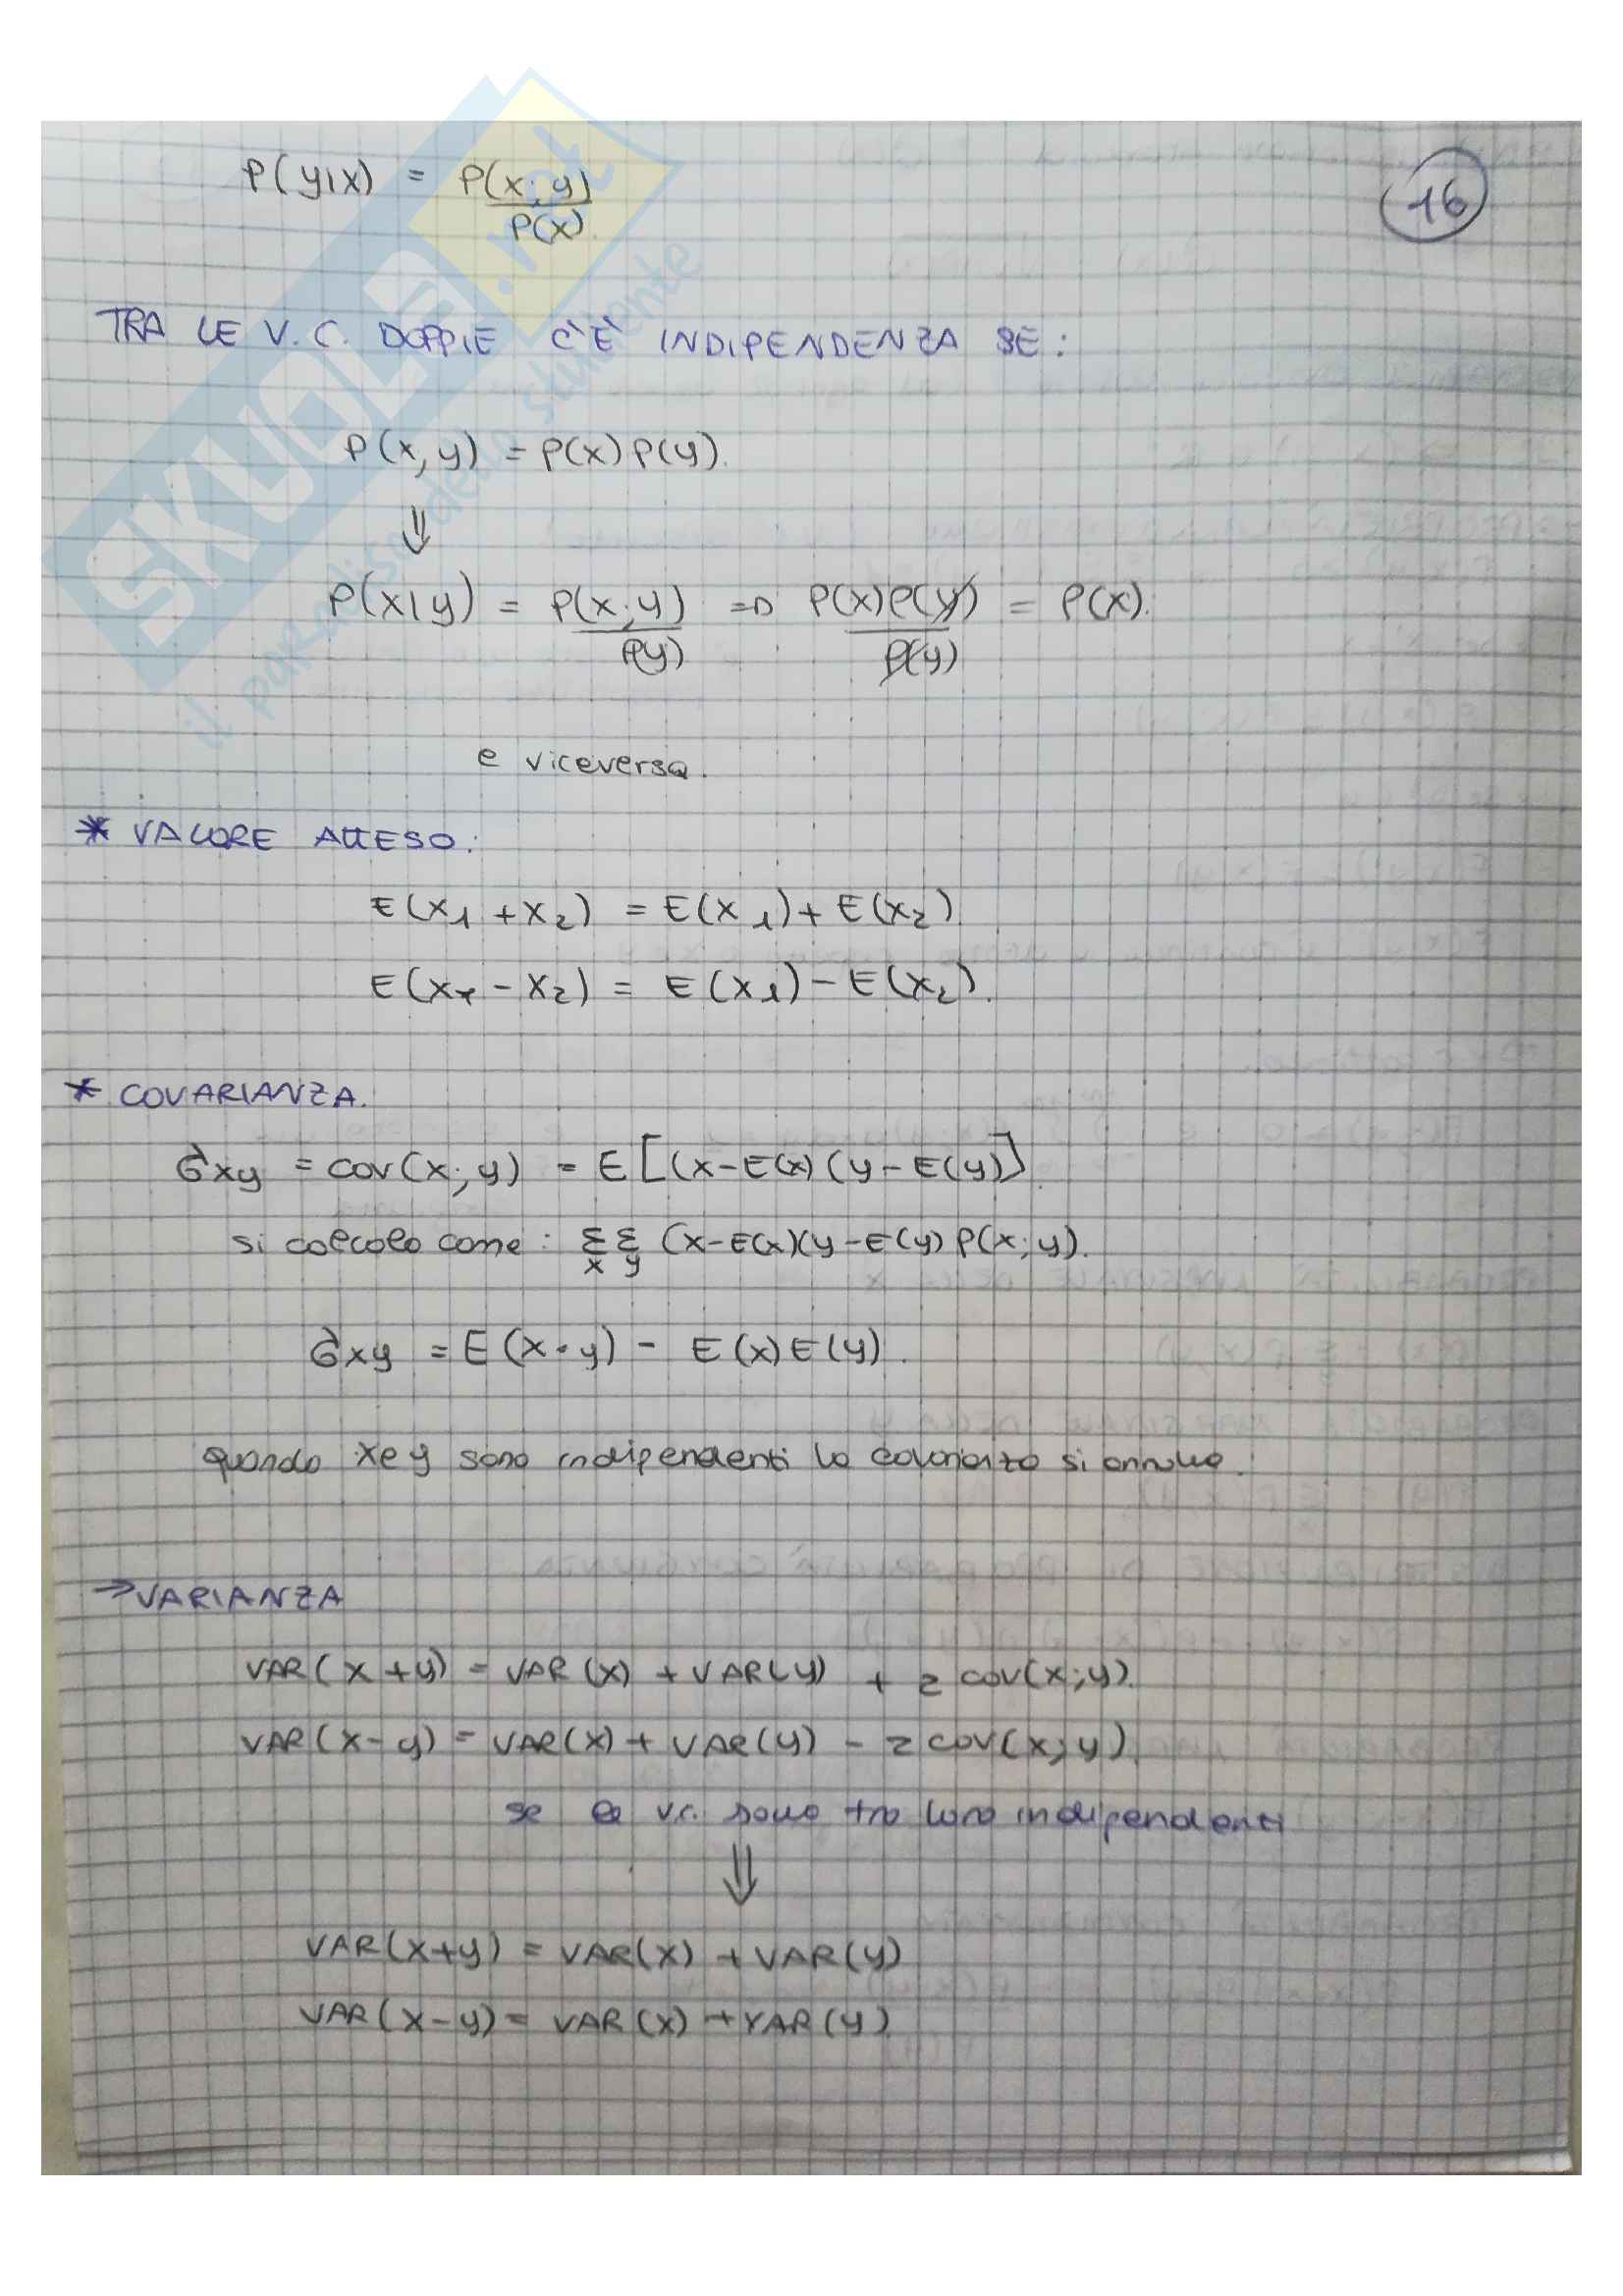 P(y|x) = P(x;y) / P(x)
16
TRA LE V.C. DOPPIE C'È INDIPENDENZA SE:
P(x,y) = P(x)P(y).
⇓
P(x|y) = P(x;y) / P(y) => P(x)P(y) / P(y) = P(x).
e viceversa.
* VALORE ATTESO:
E(x1 + x2) = E(x1) + E(x2).
E(x1 - x2) = E(x1) - E(x2).
* COVARIANZA.
σxy = cov(x;y) = E[(x-E(x)(y-E(y)].
si calcolo come: Σx Σy (x-E(x)(y-E(y) P(x;y).
σxy = E(x·y) - E(x)E(y).
quando x e y sono indipendenti la covarianza si annulla.
→ VARIANZA
VAR(x+y) = VAR(x) + VAR(y) + 2 cov(x;y).
VAR(x-y) = VAR(x) + VAR(y) - 2 cov(x;y).
se le v.c. sono tra loro indipendenti
⇓
VAR(x+y) = VAR(x) + VAR(y)
VAR(x-y) = VAR(x) + VAR(y).
SKUOLA.net
il paradiso dello studente